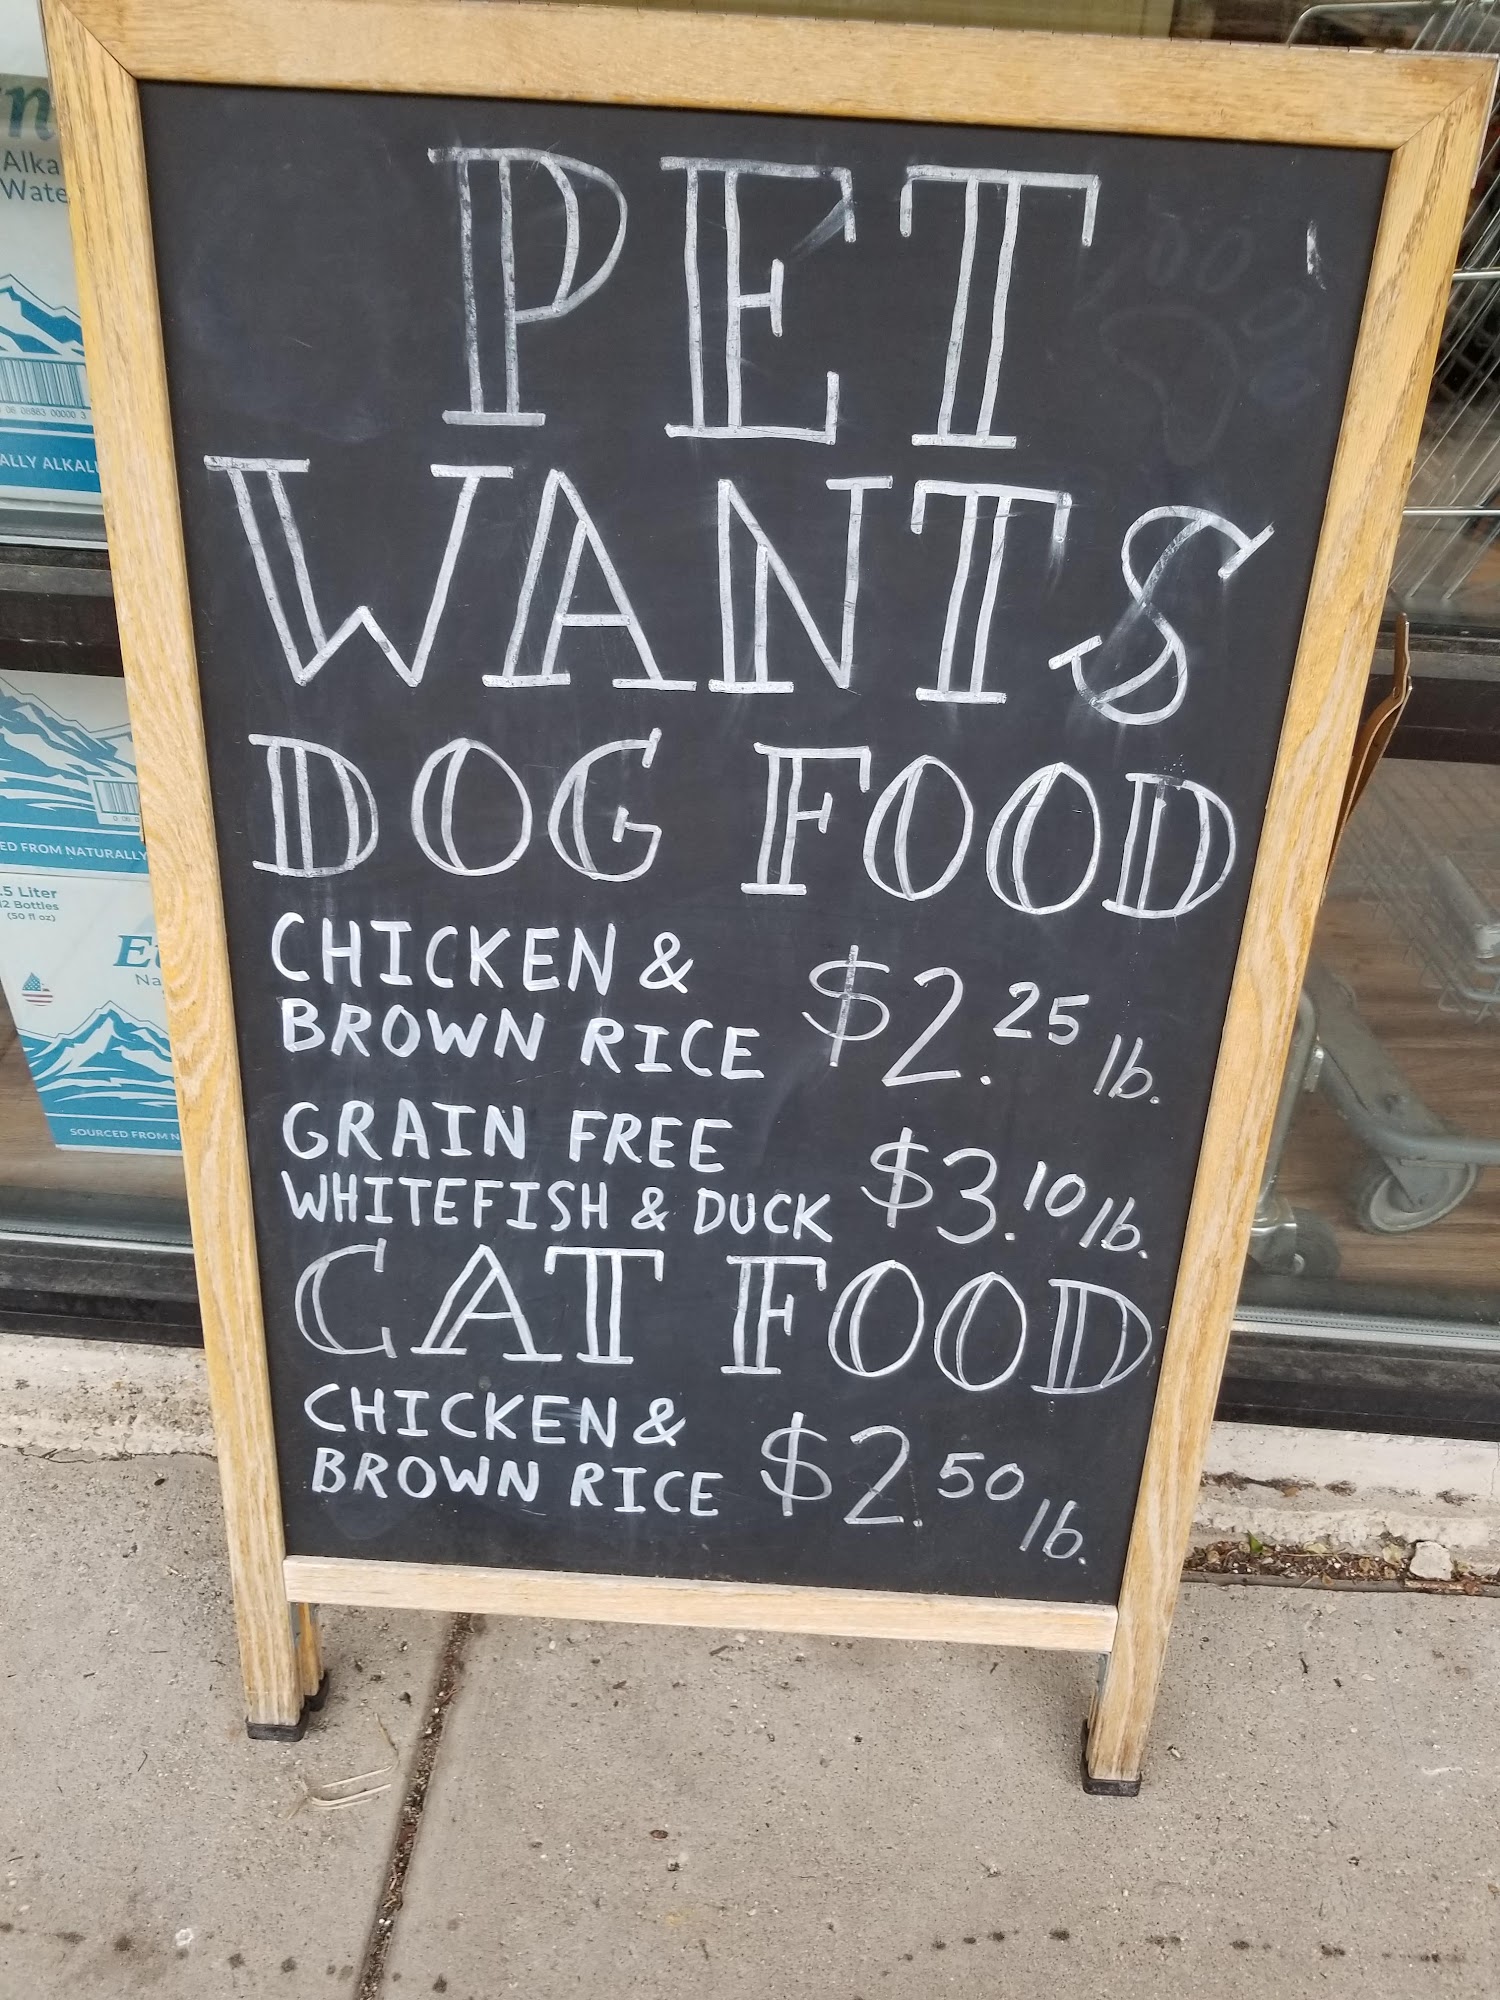 PET
WANTS
DOG FOOD
CHICKEN &
BROWN RICE $2.25 lb.
GRAIN FREE
WHITEFISH & DUCK $3.10 lb.
CAT FOOD
CHICKEN &
BROWN RICE $2.50 lb.
Alka
Wate
ALLY ALKALI
ED FROM NATURALLY
.5 Liter
12 Bottles
(50 fl oz)
Na
SOURCED FROM N